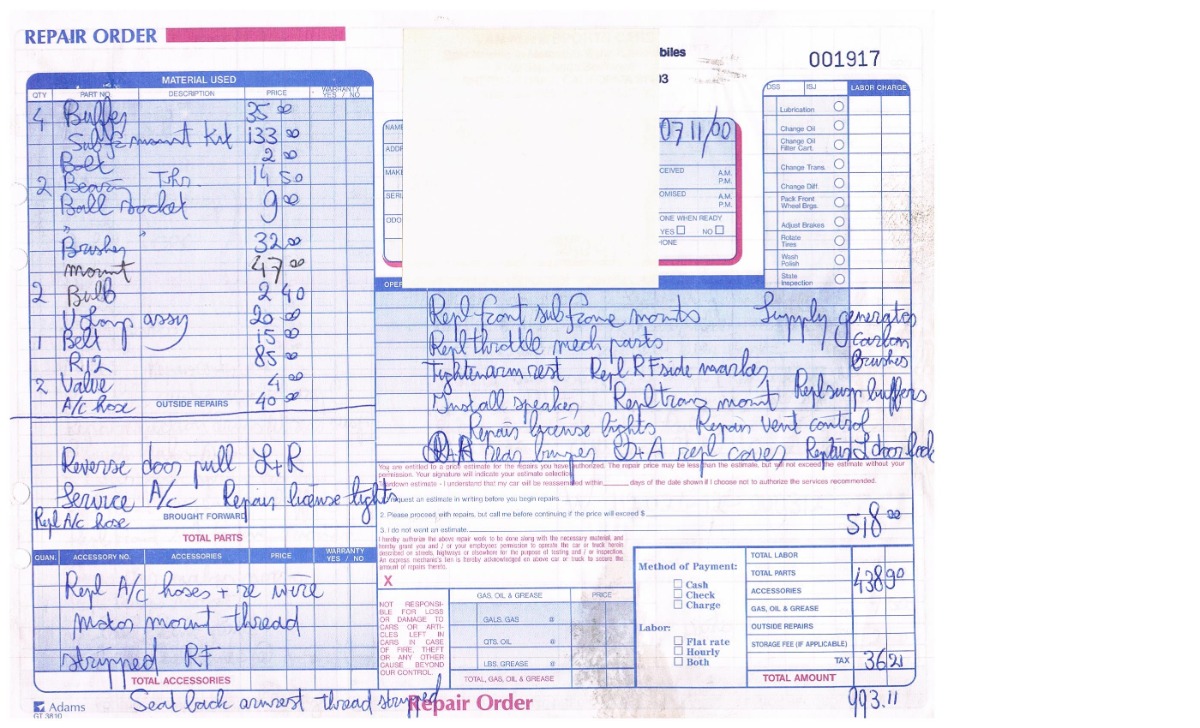 REPAIR ORDER
biles
001917
03
MATERIAL USED
QTY PART NO. DESCRIPTION PRICE WARRANTY YES / NO
4 Buffer 35 00
Subf mount Kit 133 00
Bolt 2 00
2 Bearing Thr. 14 50
Ball socket 9 00
Brushes 32 00
mount 47 00
2 Bulb 2 40
assy 20 00
1 Belt 15 00
R12 85 00
2 Valve 4 00
A/c hose OUTSIDE REPAIRS 40 00
Reverse door pull L+R
Service A/c Repair license lights
Repl A/c hose BROUGHT FORWARD
TOTAL PARTS
NAME
ADDR
MAKE
SERI
ODO
07 11/00
CEIVED A.M. P.M.
OMISED A.M. P.M.
ONE WHEN READY
YES NO
HONE
CSS ISJ LABOR CHARGE
Lubrication
Change Oil
Change Oil Filter Cart.
Change Trans.
Change Diff.
Pack Front Wheel Brgs.
Adjust Brakes
Rotate Tires
Wash Polish
State Inspection
OPER
Repl front subframe mounts Supply generator
Repl throttle mech parts Carbon
Tighten arm rest Repl RF side marker Brushes
Install speaker Repl trans mount Repl susp buffers
Repair license lights Repair vent control
R+A rear bumper D+A repl cover Repair L door lock
You are entitled to a price estimate for the repairs you have authorized. The repair price may be less than the estimate, but will not exceed the estimate without your
permission. Your signature will indicate your estimate selection.
rdown estimate - I understand that my car will be reassembled within days of the date shown if I choose not to authorize the services recommended.
request an estimate in writing before you begin repairs.
2. Please proceed with repairs, but call me before continuing if the price will exceed $
3. I do not want an estimate.
518 00
I hereby authorize the above repair work to be done along with the necessary material, and
hereby grant you and / or your employees permission to operate the car or truck herein
described on streets, highways or elsewhere for the purpose of testing and / or inspection.
An express mechanic's lien is hereby acknowledged on above car or truck to secure the
amount of repairs thereto.
X
QUAN. ACCESSORY NO. ACCESSORIES PRICE WARRANTY YES / NO
Repl A/c hoses + re wire
Motor mount thread
stripped RF
TOTAL ACCESSORIES
NOT RESPONSI-
BLE FOR LOSS
OR DAMAGE TO
CARS OR ARTI-
CLES LEFT IN
CARS IN CASE
OF FIRE, THEFT
OR ANY OTHER
CAUSE BEYOND
OUR CONTROL.
GAS, OIL & GREASE PRICE
GALS. GAS @
QTS. OIL @
LBS. GREASE @
TOTAL, GAS, OIL & GREASE
Method of Payment:
Cash
Check
Charge
Labor:
Flat rate
Hourly
Both
TOTAL LABOR
TOTAL PARTS 438 90
ACCESSORIES
GAS, OIL & GREASE
OUTSIDE REPAIRS
STORAGE FEE (IF APPLICABLE)
TAX 36 21
TOTAL AMOUNT
993.11
Adams
GT 3810
Seat back armrest thread stripped
Repair Order